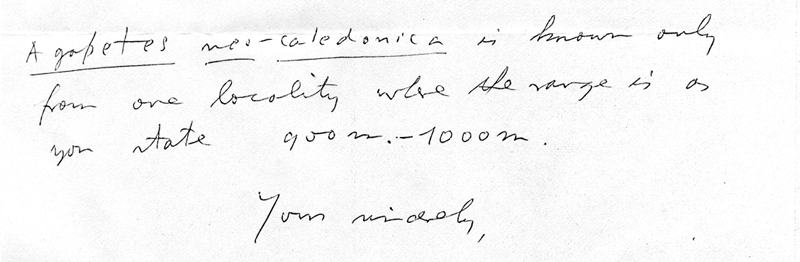 Agapetes neo-caledonica is known only
from one locality where the range is as
you state 900m.-1000m.
Yours sincerely,